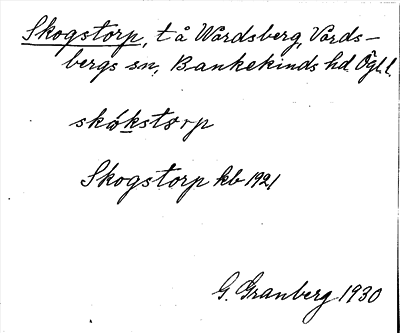 Skogstorp, t å Wårdsberg, Vårds-
bergs sn, Bankekinds hd Ögl.l.
skǿkstorp
Skogstorp kb 1921
G. Granberg 1930